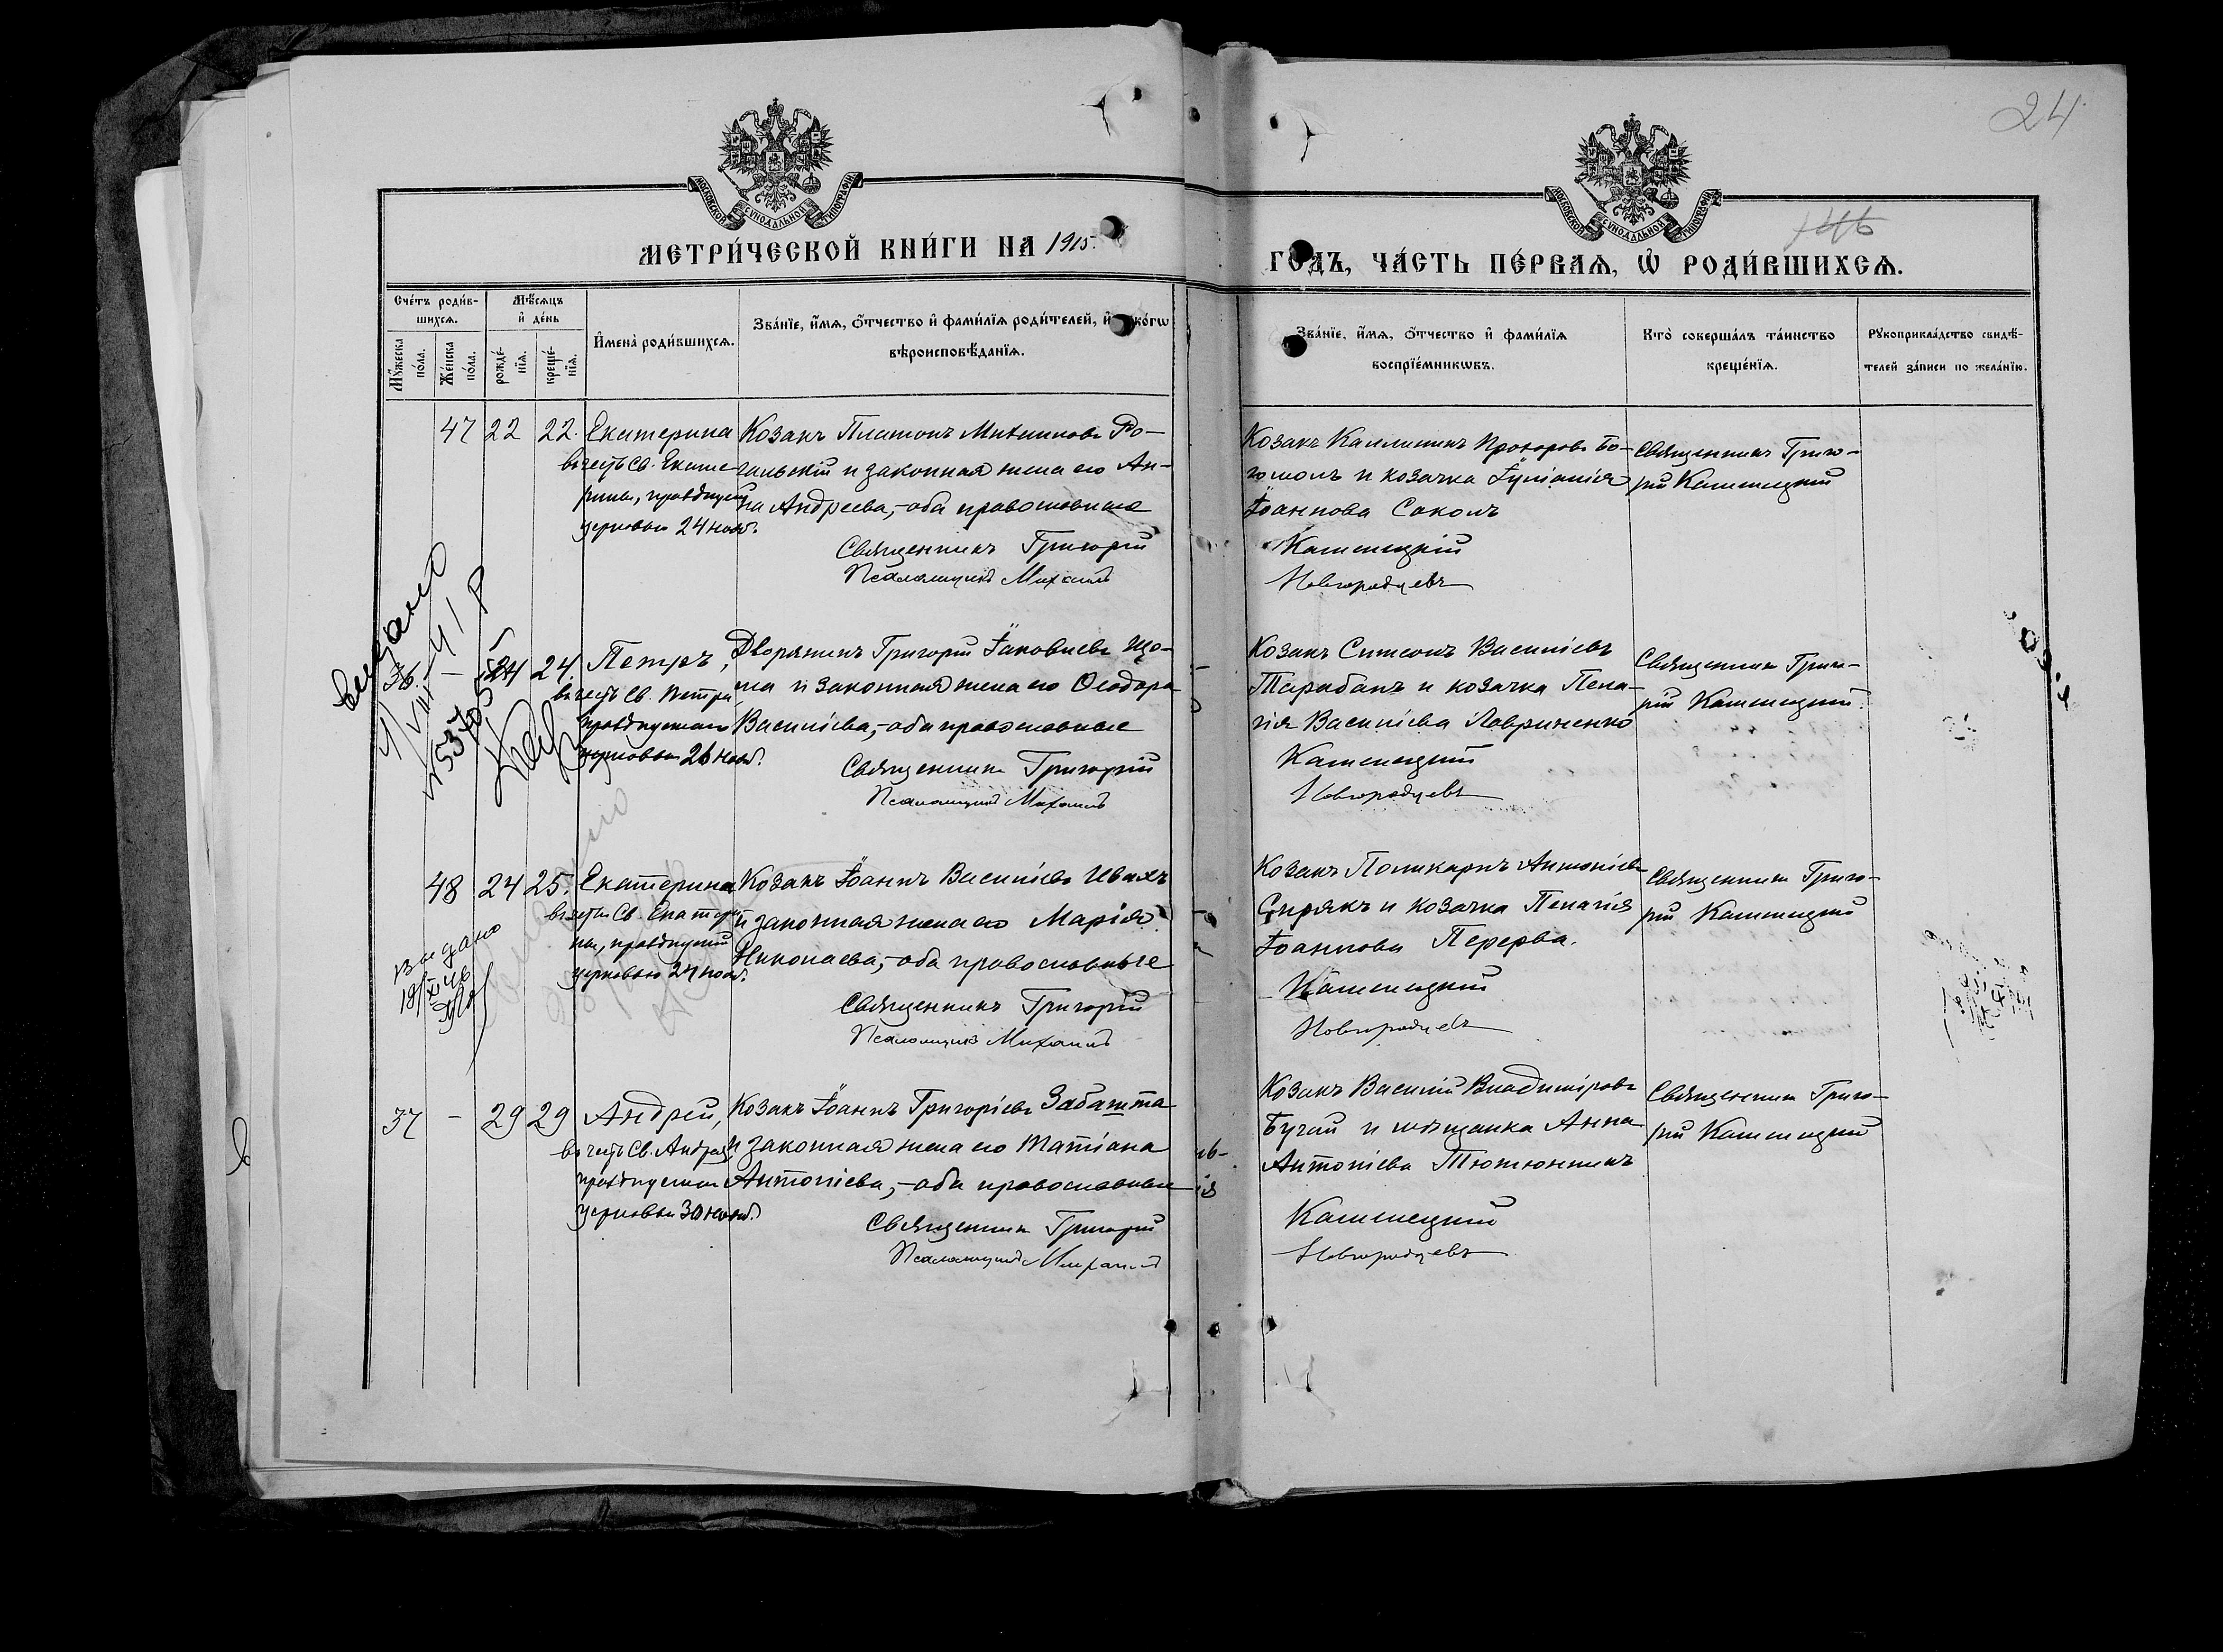 24
МОСКОВСКОЙ СѴНОДАЛЬНОЙ ТИПОГРАФІИ
МОСКОВСКОЙ СѴНОДАЛЬНОЙ ТИПОГРАФІИ
МЕТРИ́ЧЕСКОЙ КНИ́ГИ НА 1915.
ГОДЪ, ЧА́СТЬ ПЕ́РВАѦ, Ѽ РОДИ́ВШИХСѦ.
Сче́тъ роди́в-
шихсѧ.
Мꙋ́жеска по́ла.
Же́нска по́ла.
Мѣ́сѧцъ и҆ де́нь
рожде́-
нїѧ.
креще́-
нїѧ.
И҆мена̀ роди́вшихсѧ.
Зва́нїе, и҆́мѧ, ѻ҆́тчество и҆ фами́лїѧ роди́телей, и҆ како́гѡ
вѣроисповѣ́данїѧ.
Зва́нїе, и҆́мѧ, ѻ҆́тчество и҆ фами́лїѧ
воспрїе́мникѡвъ.
Кто̀ соверша́лъ та́инство
креще́нїѧ.
Рꙋкоприкла́дство свидѣ́-
телей за́писи по жела́нїю.
47 22 22. Екатерина
въ честь Св. Екате-
рины, празднуем.
церковью 24 нояб.
Козакъ Платонъ Михаиловъ Ро-
гальскій и законная жена его Ан-
на Андреева,-оба православные
Священникъ Григорій
Псаломщикъ Михаилъ
Козакъ Каллиникъ Прохоровъ Бо-
гомолъ и козачка Іуліанія
Іоаннова Соколъ
Каменецкій
Новгородцевъ
Священникъ Григо-
рій Каменецкій
выдано
36 - 24 24. Петръ,
въ честь Св. Петра
празднуемаго
церковью 26 нояб.
Дворянинъ Григорій Іаковлевъ Що-
и законная жена его Ѳеодора
Василіева,-оба православные
Священникъ Григорій
Псаломщикъ Михаилъ
Козакъ Симеонъ Василіевъ
Тарабанъ и козачка Пела-
гія Василіева Лавриненко
Каменецкій
Новгородцевъ
Священникъ Григо-
рій Каменецкій
48 24 25. Екатерина
въ честь Св. Екатери-
ны, празднуемой
церковью 24 нояб.
Выдано
Козакъ Іоаннъ Василіевъ Ивахъ
и законная жена его Марія
Николаева,-оба православные
Священникъ Григорій
Псаломщикъ Михаилъ
Козакъ Поликарпъ Антоніевъ
Сирякъ и козачка Пелагія
Іоаннова Перерва.
Каменецкій
Новгородцевъ
Священникъ Григо-
рій Каменецкій
37 - 29 29 Андрей,
въ честь Св. Андрея
празднуемаго
церковью 30 нояб.
Козакъ Іоаннъ Григоріевъ Забашта
и законная жена его Татіана
Антоніева,-оба православные
Священникъ Григорій
Псаломщикъ Михаилъ
Козакъ Василій Владиміровъ
Бугай и мѣщанка Анна
Антоніева Тютюнникъ
Каменецкій
Новгородцевъ
Священникъ Григо-
рій Каменецкій